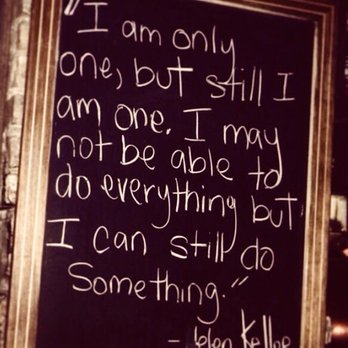 "I am only
one, but still I
am one. I may
not be able to
do everything but
I can still do
Something."
- Helen Keller